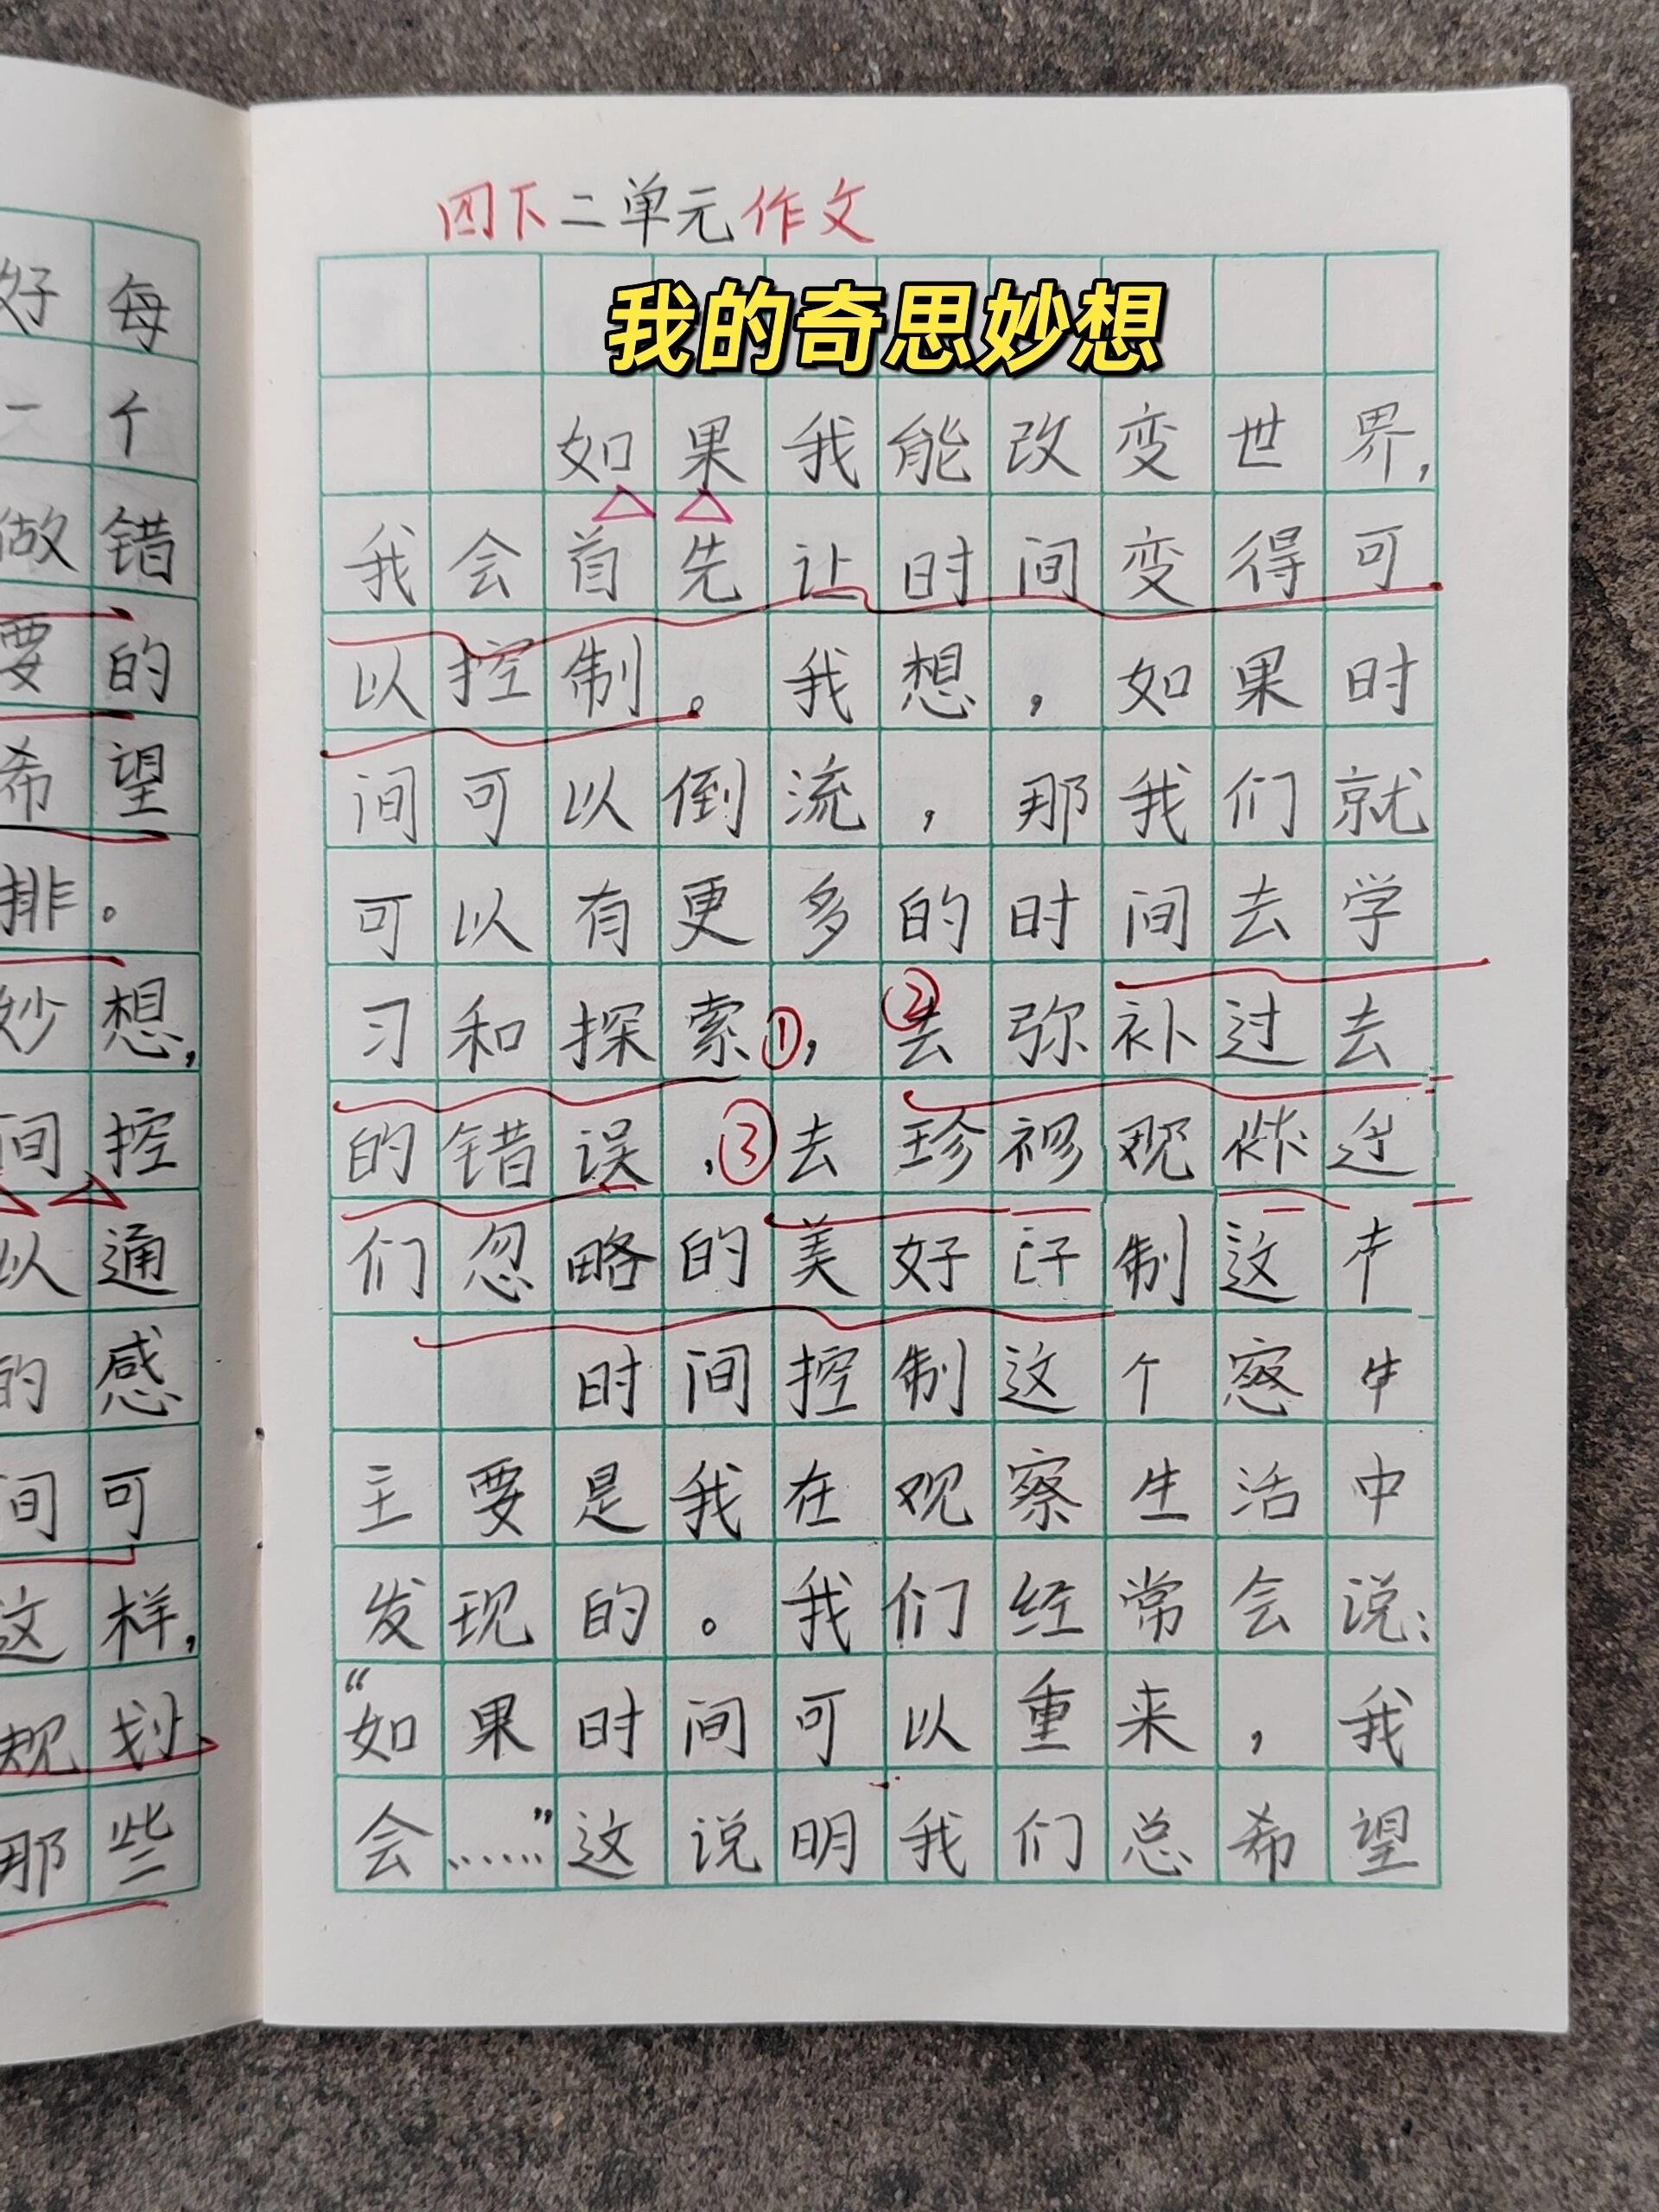 好每
一个
做错
要的
希望
排。
妙想,
间控
以通
的感
间可
这样,
规划
那些
四下二单元作文
我的奇思妙想
如果我能改变世界,
我会首先让时间变得可
以控制。我想,如果时
间可以倒流,那我们就
可以有更多的时间去学
习和探索①,②去弥补过去
的错误,③去珍观
们忽略的美好制这
时间控制这个
主要是我在观察生活中
发现的。我们经常会说:
“如果时间可以重来,我
会……”这说明我们总希望